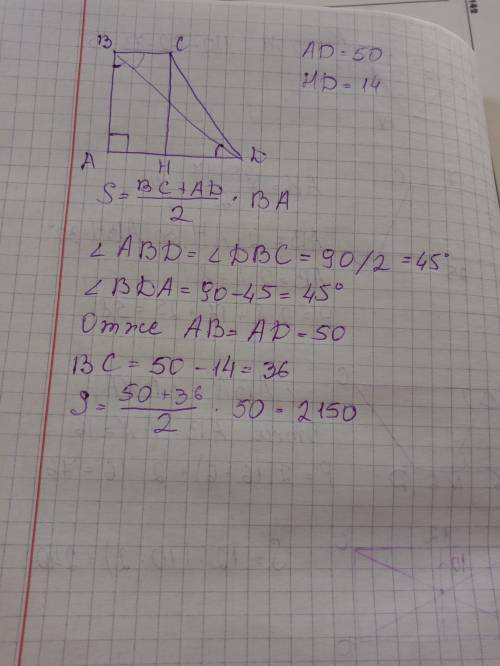 B C
AD = 50
HD = 14
A H D
S = BC + AD / 2 · BA
∠ABD = ∠DBC = 90/2 = 45°
∠BDA = 90 - 45 = 45°
Отже AB = AD = 50
BC = 50 - 14 = 36
S = 50 + 36 / 2 · 50 = 2150